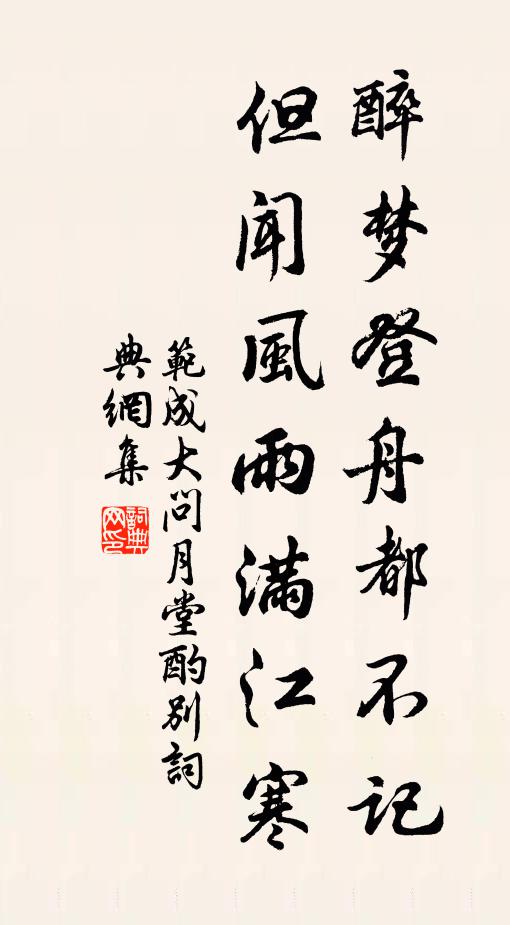 醉梦登舟都不记
但闻風雨满江寒
範成大问月堂酌别詞
典網集
詞典
网印